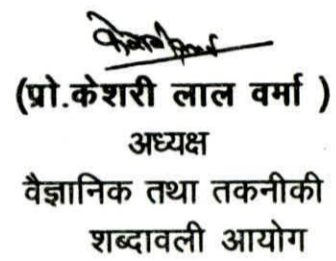 (प्रो.केशरी लाल वर्मा )
अध्यक्ष
वैज्ञानिक तथा तकनीकी
शब्दावली आयोग